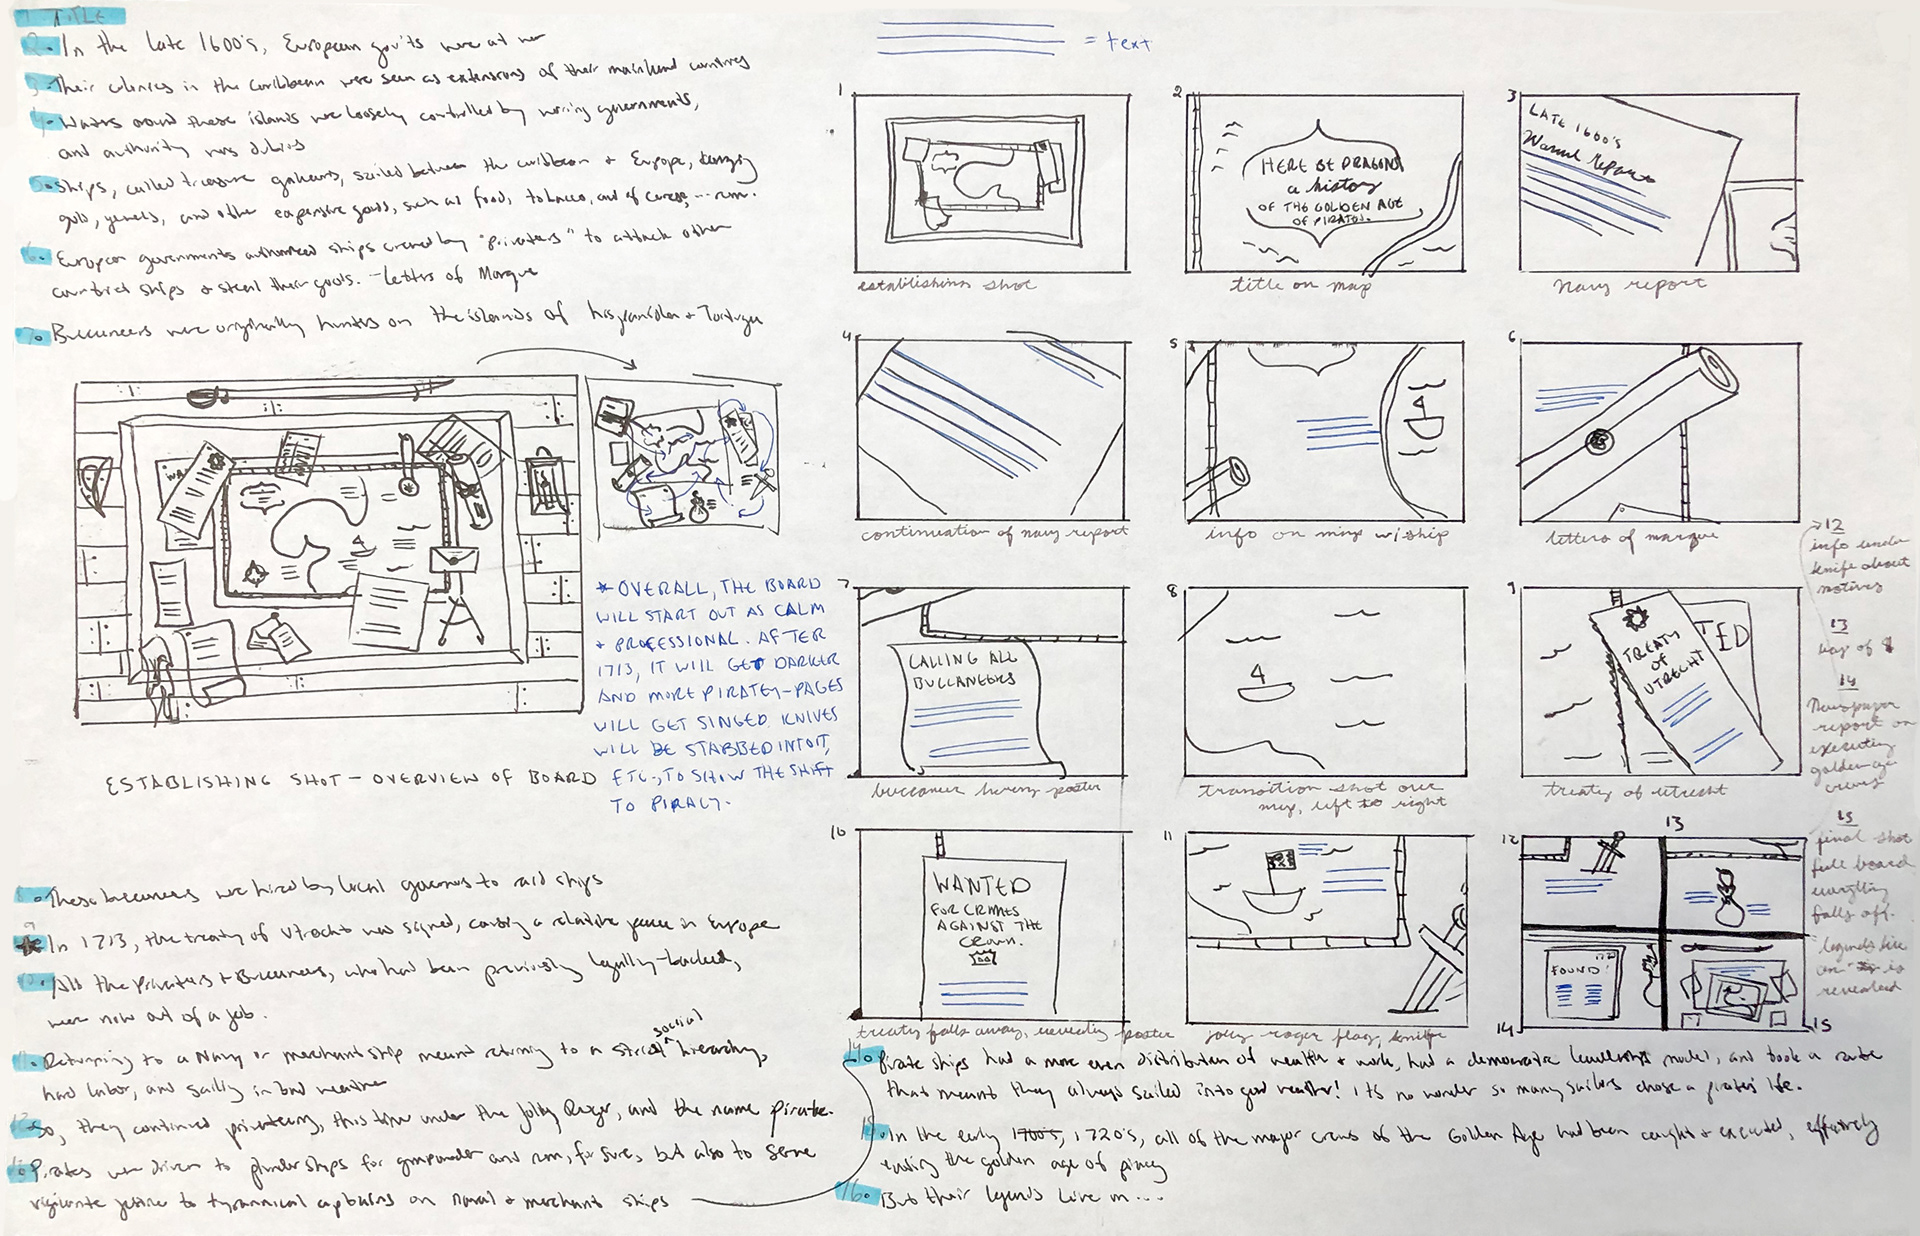 1. TITLE
2. In the late 1600's, European gov'ts were at war
3. Their colonies in the caribbean were seen as extensions of their mainland countries
4. Waters around these islands were loosely controlled by warring governments,
and authority was dubious
5. Ships, called treasure galleons, sailed between the caribbean + Europe, carrying
gold, jewels, and other expensive goods, such as food, tobacco, and of course, ... rum.
6. European governments authorized ships crewed by "privateers" to attack other
countries' ships + steal their goods. - Letters of Marque
7. Buccaneers were originally hunters on the islands of hispaniola + Tortuga
* OVERALL, THE BOARD
WILL START OUT AS CALM
+ PROFESSIONAL. AFTER
1713, IT WILL GET DARKER
AND MORE PIRATEY-PAGES
WILL GET SINGED, KNIVES
WILL BE STABBED INTO IT,
ETC., TO SHOW THE SHIFT
TO PIRACY.
ESTABLISHING SHOT - OVERVIEW OF BOARD
8. These buccaneers were hired by local governors to raid ships
9
In 1713, the treaty of Utrecht was signed, causing a relative peace in Europe
10. All the privateers + Buccaneers, who had been previously legally-backed,
were now out of a job.
11. Returning to a Navy or merchant ship meant returning to a strict social hierarchy,
hard labor, and sailing in bad weather
12. So, they continued privateering, this time under the Jolly Roger, and the name pirate.
13. Pirates were driven to plunder ships for gunpowder and rum, for sure, but also to serve
vigilante justice to tyrannical captains on naval + merchant ships
= text
1
establishing shot
2
HERE BE DRAGONS
a history
OF THE GOLDEN AGE
OF PIRATES.
title on map
3
LATE 1600'S
Naval report
navy report
4
continuation of navy report
5
info on map w/ ship
6
letters of marque
7
CALLING ALL
BUCCANEERS
buccaneer hiring poster
8
transition shot over
map, left to right
9
TREATY
OF
UTRECHT
TED
treaty of utrecht
10
WANTED
FOR CRIMES
AGAINST THE
CROWN.
treaty falls away, revealing poster
11
jolly roger flag, knife
12
13
14
FOUND!
15
12
info under
knife about
motives
13
bag of $
14
Newspaper
report on
executing
golden age
crews
15
final shot
full board
everything
falls off.
"legends live
on" is
revealed
14. Pirate ships had a more even distribution of wealth + work, had a democratic leadership model, and took a route
that meant they always sailed into good weather! It's no wonder so many sailors chose a pirate's life.
15. In the early 1700's, 1720's, all of the major crews of the Golden Age had been caught + executed, effectively
ending the golden age of piracy
16. But their legends live on...